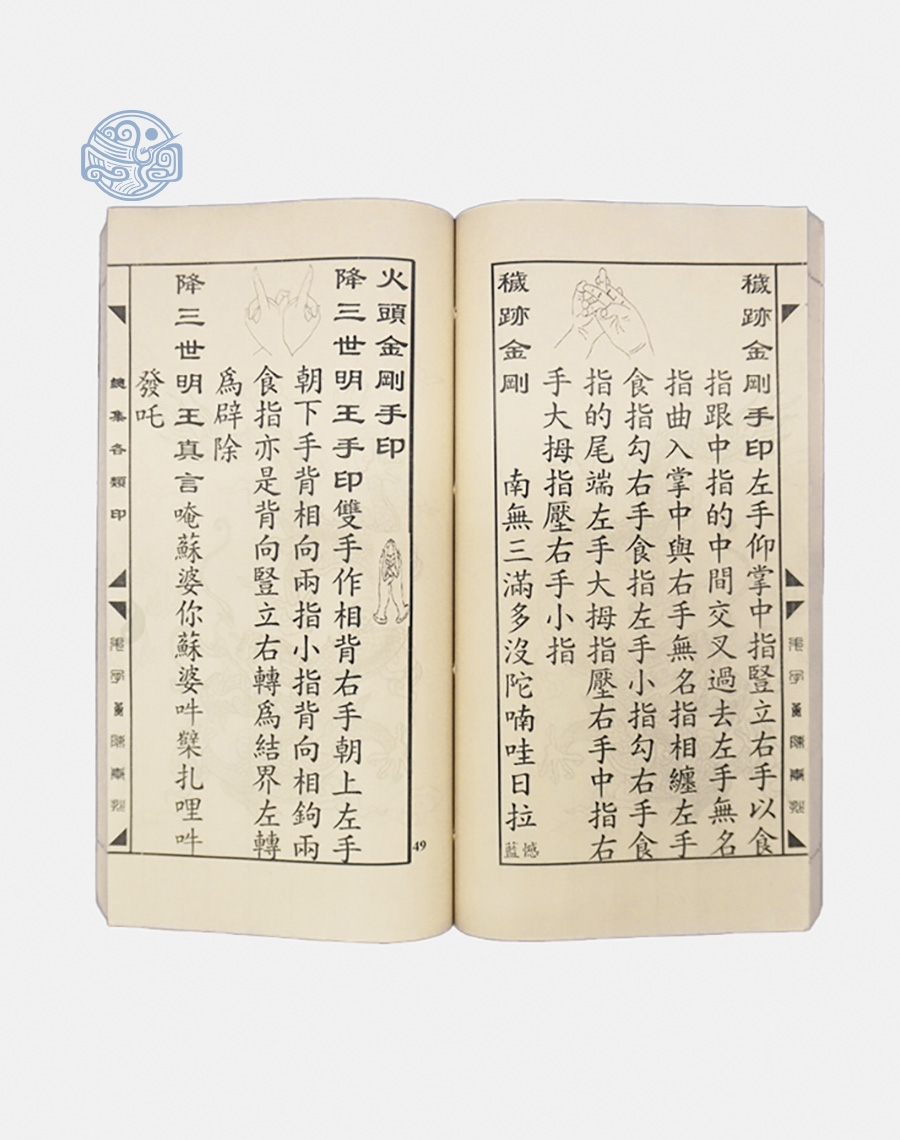 穢跡金剛手印左手仰掌中指豎立右手以食
指跟中指的中間交叉過去左手無名
指曲入掌中與右手無名指相纏左手
食指勾右手食指左手小指勾右手食
指的尾端左手大拇指壓右手中指右
手大拇指壓右手小指
穢跡金剛 南無三滿多沒陀喃哇日拉
憾
藍
49
火頭金剛手印
降三世明王手印雙手作相背右手朝上左手
朝下手背相向兩指小指背向相鉤兩
食指亦是背向豎立右轉為結界左轉
為辟除
降三世明王真言唵蘇婆你蘇婆吽櫱扎哩吽
發吒
總集各類印